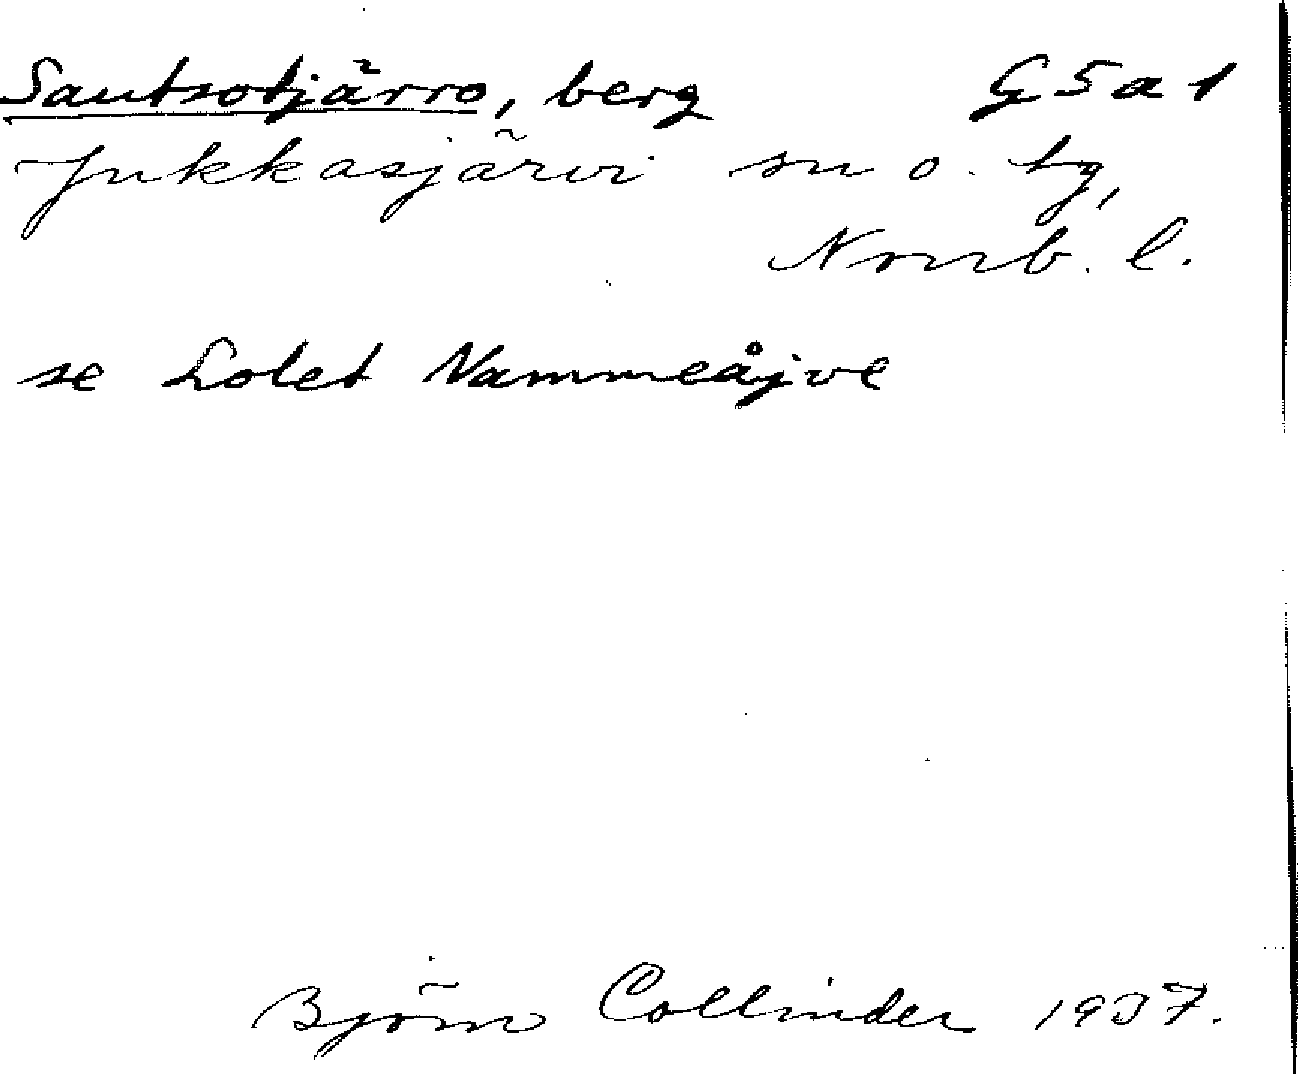 Sautsotjårro, berg G5a1
Jukkasjärvi sn o. tg,
Nrrb. l.
se Lolet Nammeåjve
Björn Collinder 1937.